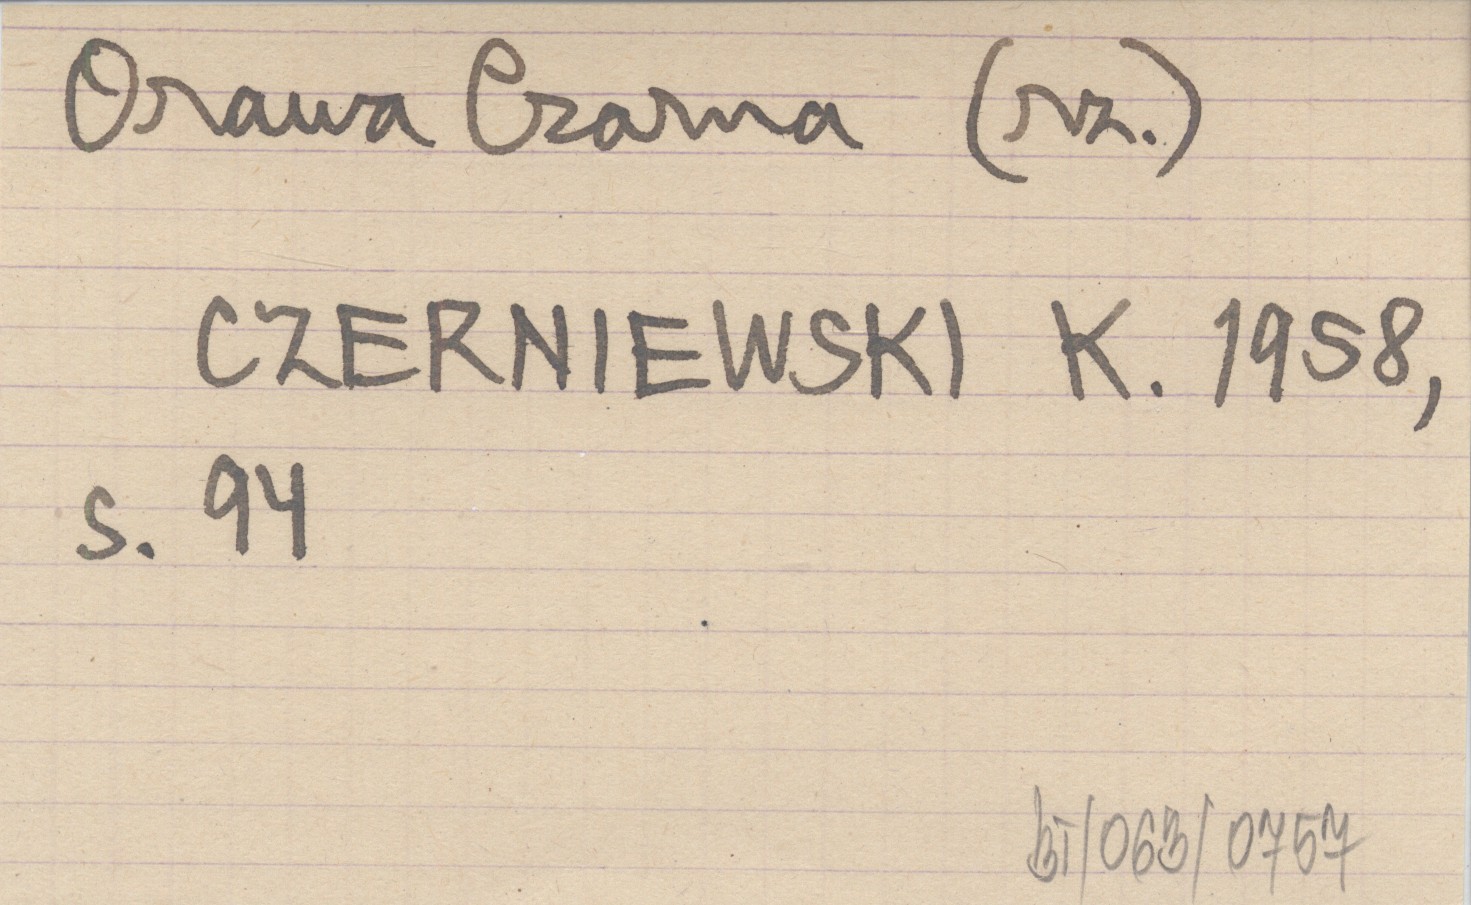 Orawa Czarna (rz.)
CZERNIEWSKI K. 1958,
s. 94
bi/063/0757